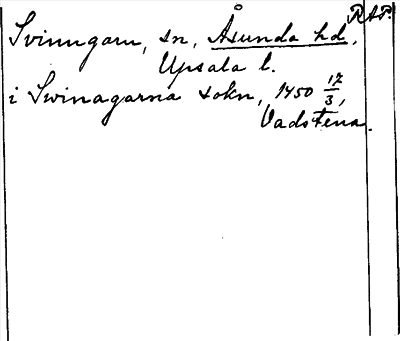 Svinngarn, sn, Åsunda hd, RAP.
Upsala l.
i Swinagarna sokn, 1450 17/3,
Vadstena.